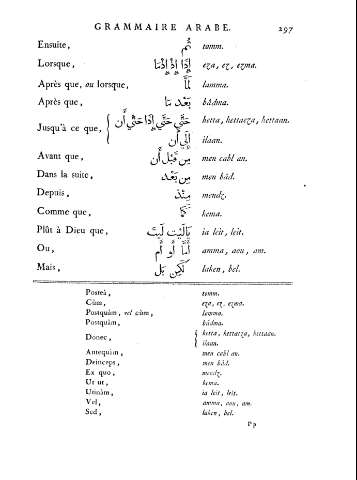 GRAMMAIRE ARABE. 297
Ensuite, ثُم tomm.
Lorsque, إِذَا إِذْ إِذْمَا eʒa, eʒ, eʒma.
Après que, ou lorsque, لَمَّا lamma.
Après que, بَعْدِ مَا bâdma.
Jusqu'à ce que, حَتَّي حَتَّي إِذَا حَتَّي أَن hetta, hettaeʒa, hettaan.
إِلَي أَن ilaan.
Avant que, مِن قَبْل أَن men cabl an.
Dans la suite, مِن بَعْد men bâd.
Depuis, مِنْذ mendʒ.
Comme que, كَمَا kema.
Plût à Dieu que, يَالَيْت لَيْتَ ia leit, leit.
Ou, أَمَّا أَو أَم amma, aou, am.
Mais, لَكِن بَل laken, bel.
Posteà, tomm.
Cùm, eʒa, eʒ, eʒma.
Postquàm, vel cùm, lamma.
Postquàm, bâdma.
Donec, hetta, hettaeʒa, hettaan.
ilaan.
Antequàm, men cabl an.
Deinceps, men bâd.
Ex quo, mendʒ.
Ut ut, kema.
Utinàm, ia leit, leit.
Vel, amma, aou, am.
Sed, laken, bel.
Pp